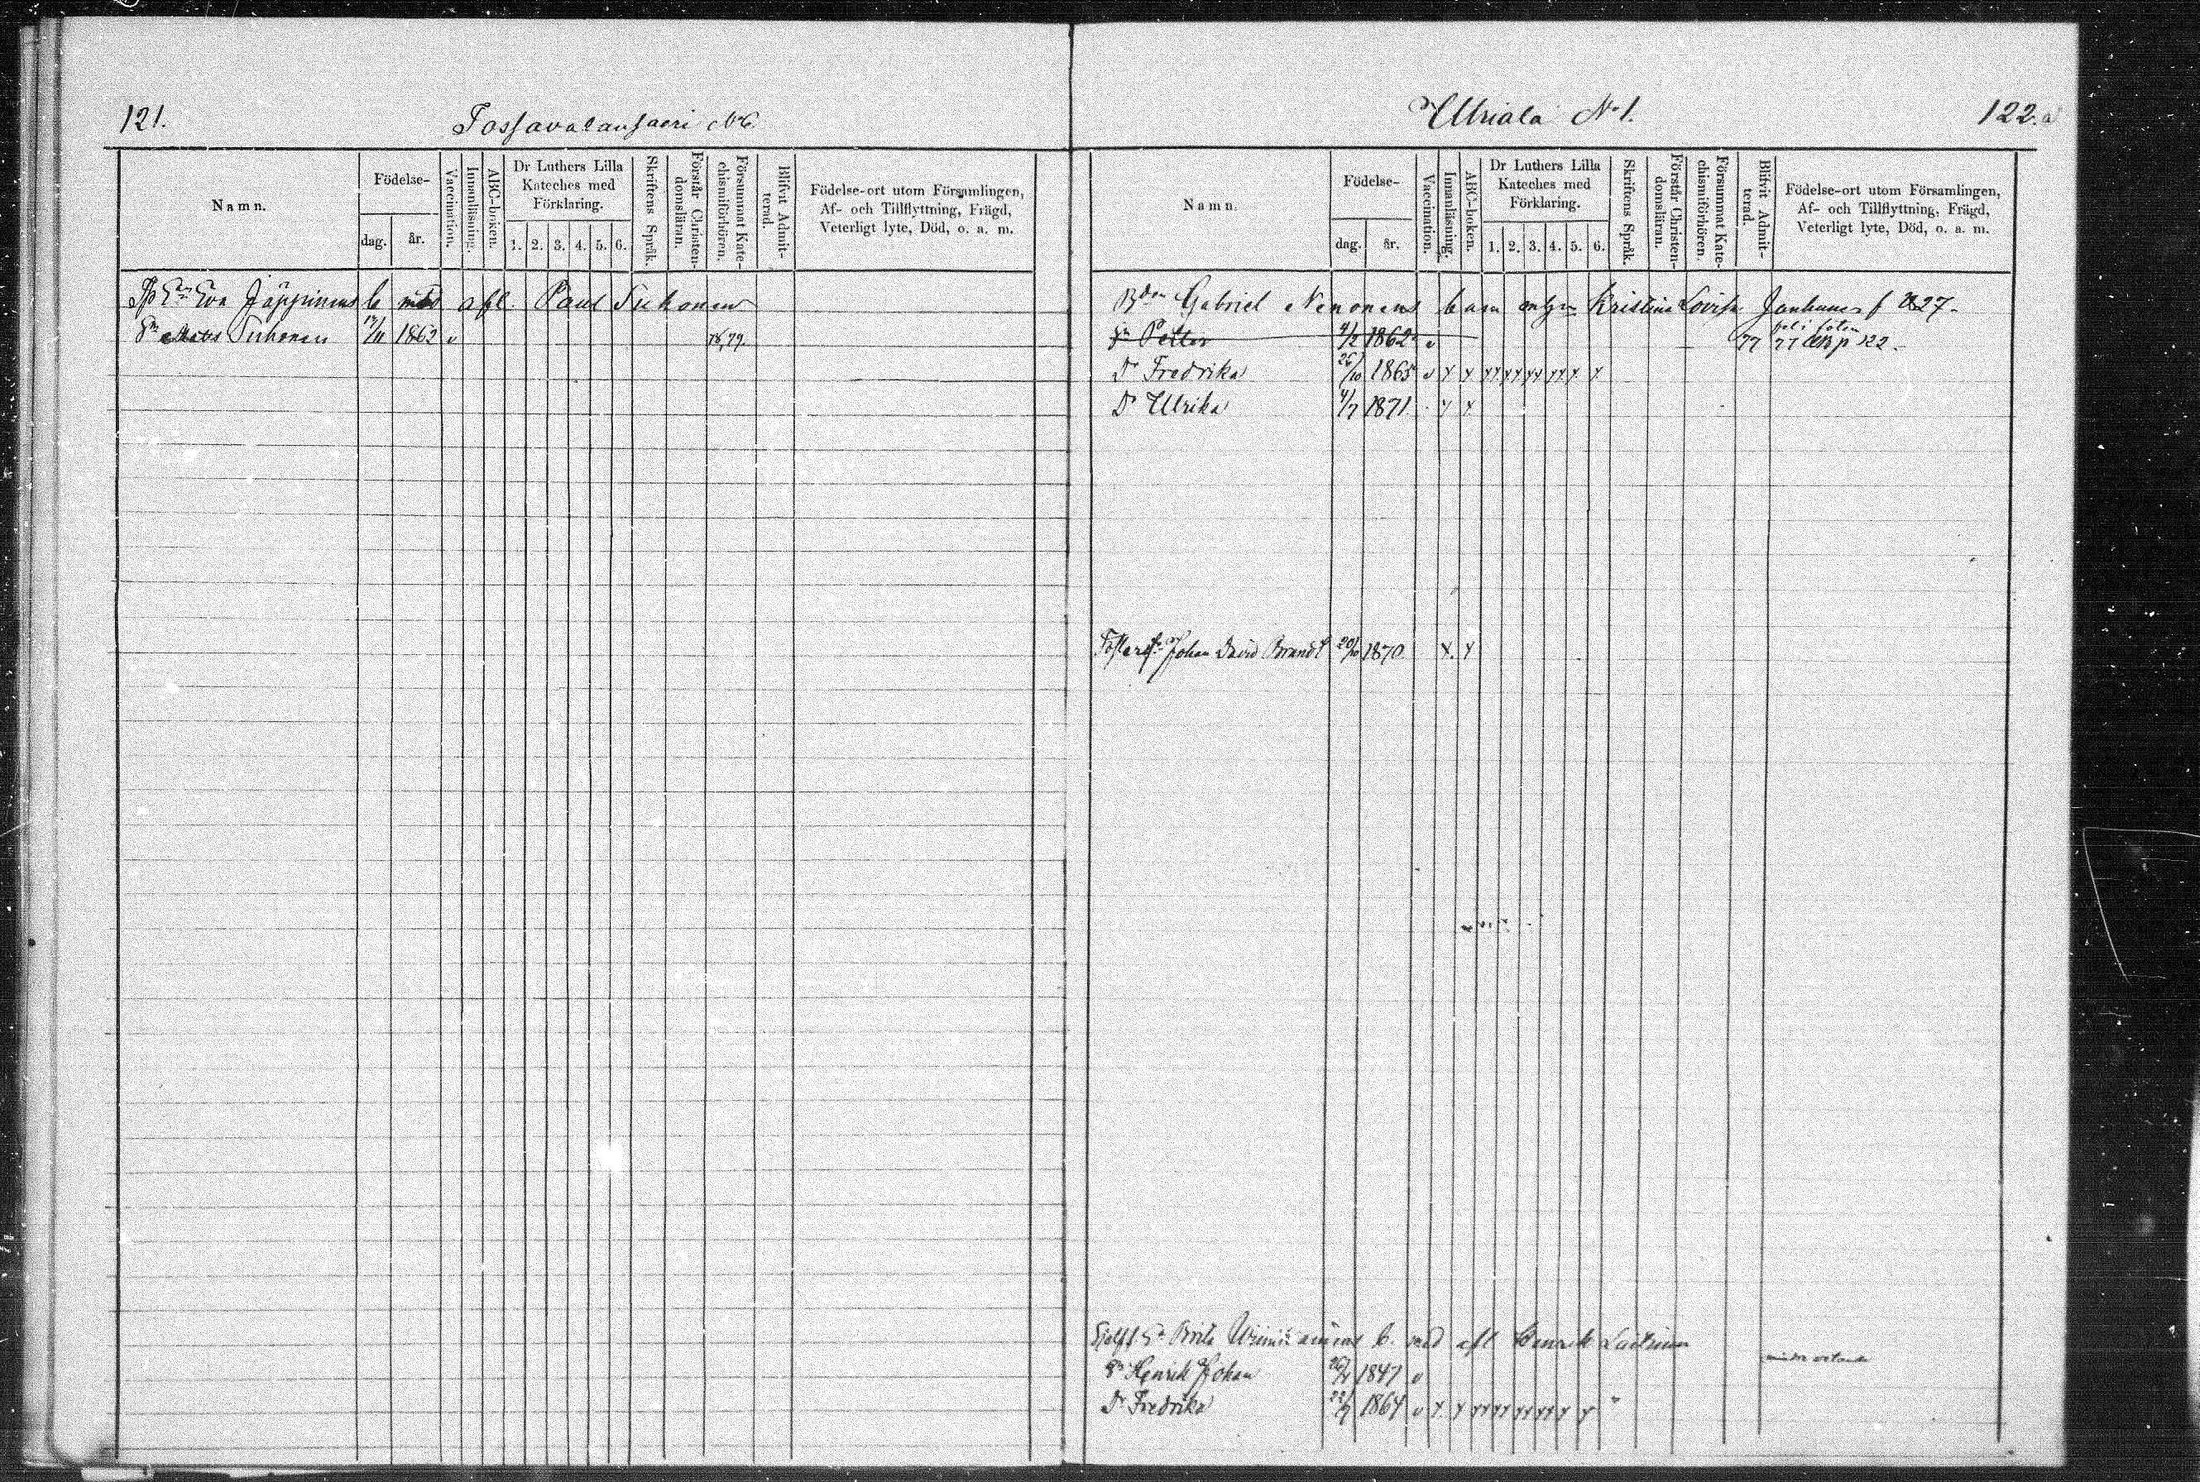 121.
Tossavalansaari No 6.
Namn.
Födelse-
dag.
år.
Vaccination.
Innanläsning.
ABC-boken.
Dr Luthers Lilla
Kateches med
Förklaring.
1. 2. 3. 4. 5. 6.
Skriftens Språk.
Förstår Christen-
domsläran.
Försummat Kate-
chismiförhören.
Blifvit Admit-
terad.
Födelse-ort utom Församlingen,
Af- och Tillflyttning, Frägd,
Veterligt lyte, Död, o. a. m.
Eva Jäppinens b med afl. Paul Tuhonen
Sn Mats Tuhonen 17/11 1862 v 78, 79.
Ulriala No 1.
122.a
Namn.
Födelse-
dag.
år.
Vaccination.
Innanläsning.
ABC-boken.
Dr Luthers Lilla
Kateches med
Förklaring.
1. 2. 3. 4. 5. 6.
Skriftens Språk.
Förstår Christen-
domsläran.
Försummat Kate-
chismiförhören.
Blifvit Admit-
terad.
Födelse-ort utom Församlingen,
Af- och Tillflyttning, Frägd,
Veterligt lyte, Död, o. a. m.
Bden Gabriel Nenonens barn m hu Kristina Lovisa Janhunen f 27.
Sn Petter 4/2 1862 v 77 p 122.
Dr Fredrika 26/10 1865 v
Dr Ulrika 4/7 1871
Foster Johan David Brandt 20/10 1870
Brita b. med afl Henrik Laitinen
Sn Henrik Johan 1847 v
Dr Fredrika 22/7 1864 v